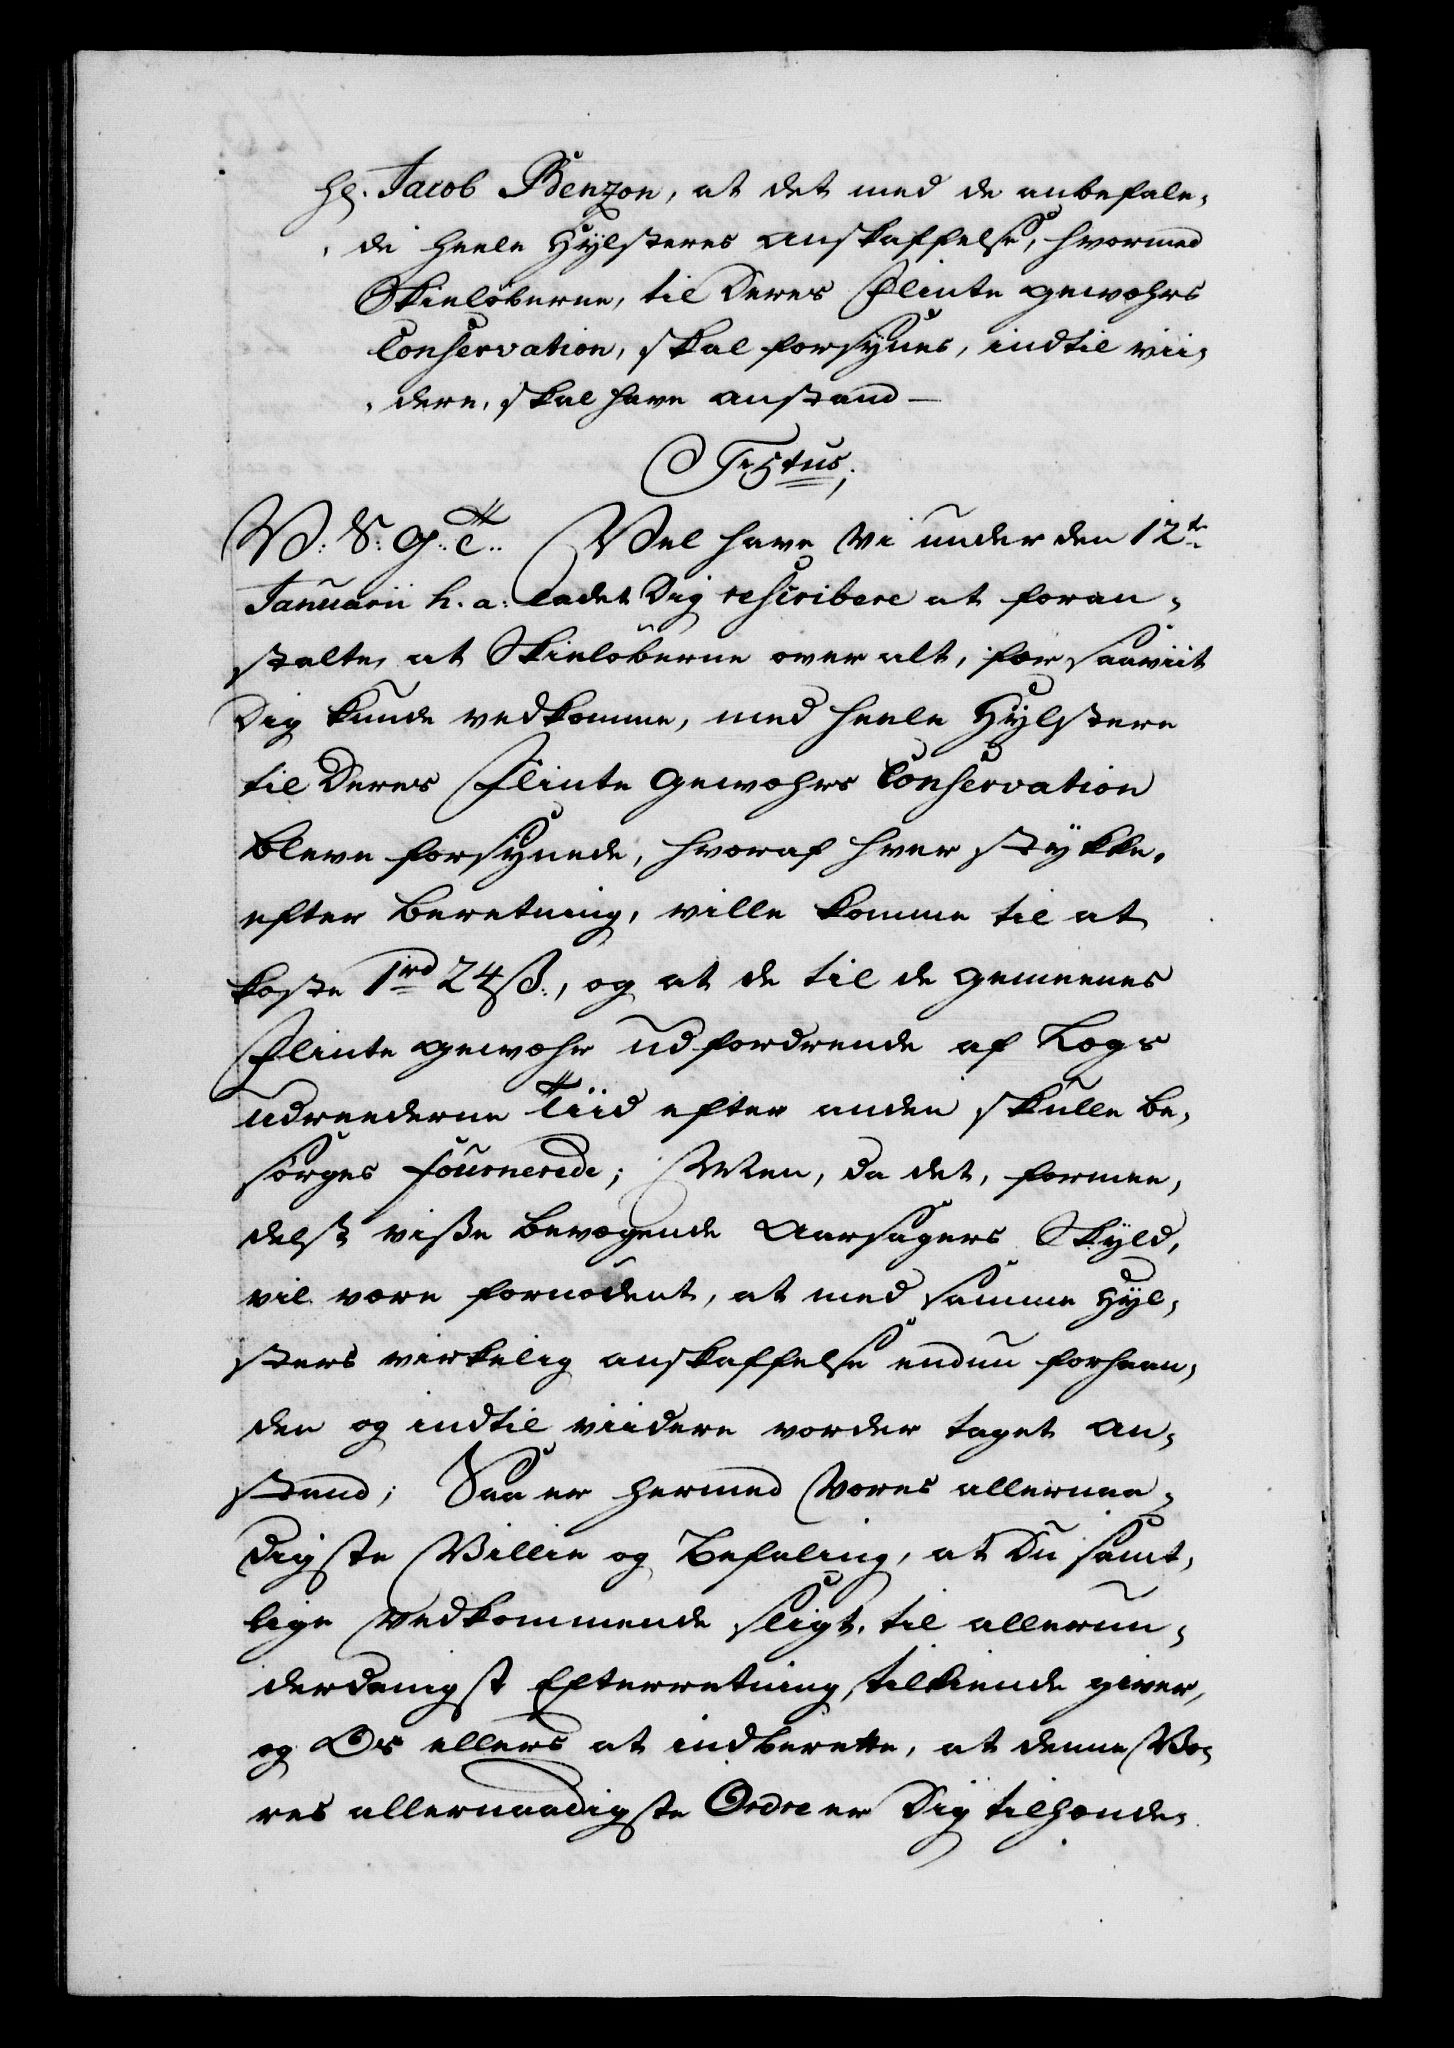 Hr. Jacob Benzon, at det med de anbefale,
, de heele Hÿlsteres anskaffelse, hvormed
Skieløberne, til Deres Flinte gewæhrs
Conservation, skal forsÿnes, indtil vii,
, dere, skal have anstand —
Textus,
V: S: G: T:. Vel have Vi under den 12te
Januarii h. a: ladet Dig rescribere at foran,
stalte, at Skieløberne over alt, for saaviit
Dig kunde vedkomme, med heele Hÿlstere
til Deres Flinte gewæhrs Conservation
bleve forsÿnede, hvoraf hver stÿkke,
efter beretning, ville komme til at
koste 1rd 24ß:, og at de til de gemeenes
Flinte gewæhr udfordrende af Lægs
udreederne Tiid efter anden skulle be,
sørges fournerede; Men, da det, formee,
delst visse bevægende Aarsagers Skÿld,
vil være fornødent, at med samme Hÿl,
sters virkelig anskaffelse endnu forhaan,
den og indtil viidere vorder taget an,
stand; Saa er hermed Vores allernaa,
digste Villie og Befaling, at Du samt,
lige Vedkommende sligt, til allerun,
derdanigst Efterretning, tilkiende giver,
og Os ellers at indberette, at denne Vo,
res allernaadigste Ordre er Dig tilhænde,